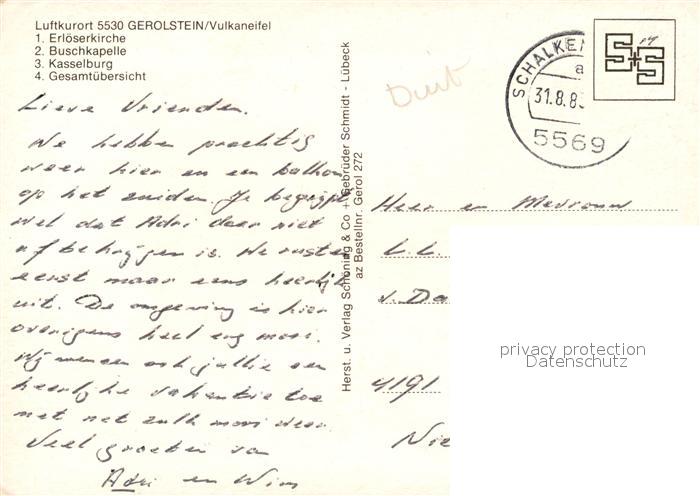 Luftkurort 5530 GEROLSTEIN/Vulkaneifel
1. Erlöserkirche
2. Buschkapelle
3. Kasselburg
4. Gesamtübersicht
Lieve Vrienden.
We hebben prachtig
weer hier en een balkon
op het zuiden. Je begrijpt
wel dat Adri daar niet
af te krijgen is. We rusten
eerst maar eens heerlijk
uit. De omgeving is hier
overigens heel erg mooi.
Wij wensen ook jullie een
heerlijke vakantie toe
met net zulk mooi weer.
Veel groeten van
Adri en Wim
Herst. u. Verlag Schöning & Co + Gebrüder Schmidt - Lübeck
az Bestellnr. Gerol 272
SCHALKEN
a
31.8.8
5569
S+S
Heer en Mevrouw
v. Da
4191
privacy protection
Datenschutz